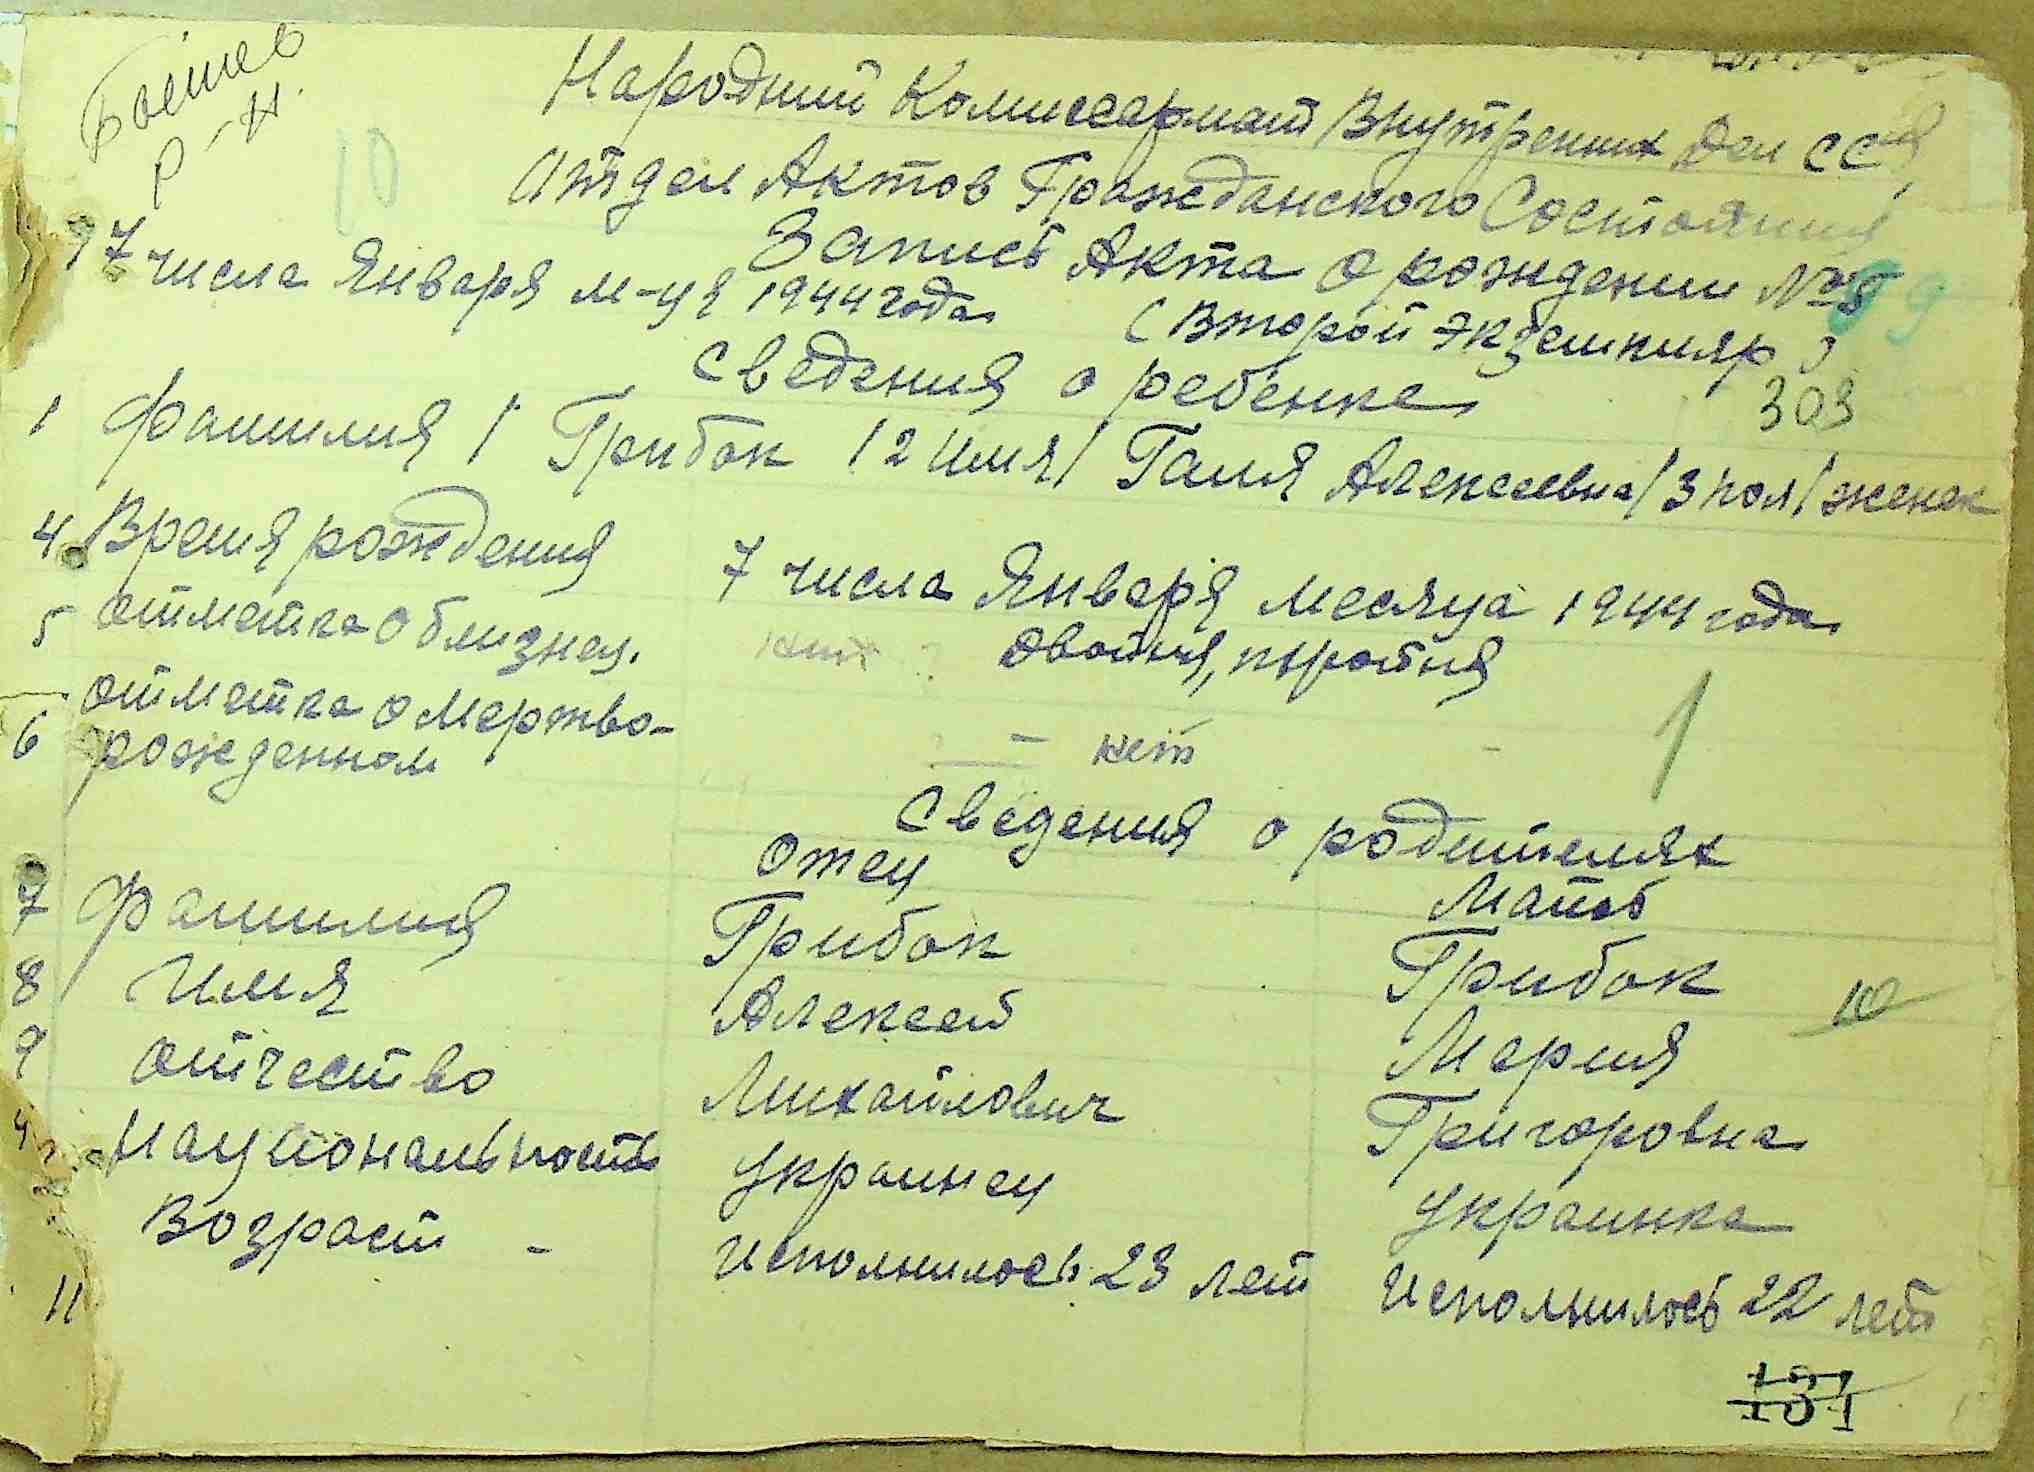 Р-н.
10
Народний Комиссариат Внутрених Дел ССР
Атдел Актов Гражданского Состояния
Запись Акта о рождении №8
7 числа Января м-ця 1944 года
(Второй экземпляр)
99
303
Сведения о ребенке
1 Фамилия / Грибок / 2 Имя / Галя Алексеевна / 3 пол / женск
4 Время рождения 7 числа Января месяца 1944 года
5 отметка о близнец. нет двойня, тройня
6 отметка о мертво-
рожденном — нет -
Сведения о родителях
Отец Мать
7 Фамилия Грибок Грибок
8 Имя Алексей Мария
10
9 отчество Михайлович Григоровна
Национальность Украинец Украинка
11 Возраст - Исполнилось 23 лет Исполнилось 22 лет
131